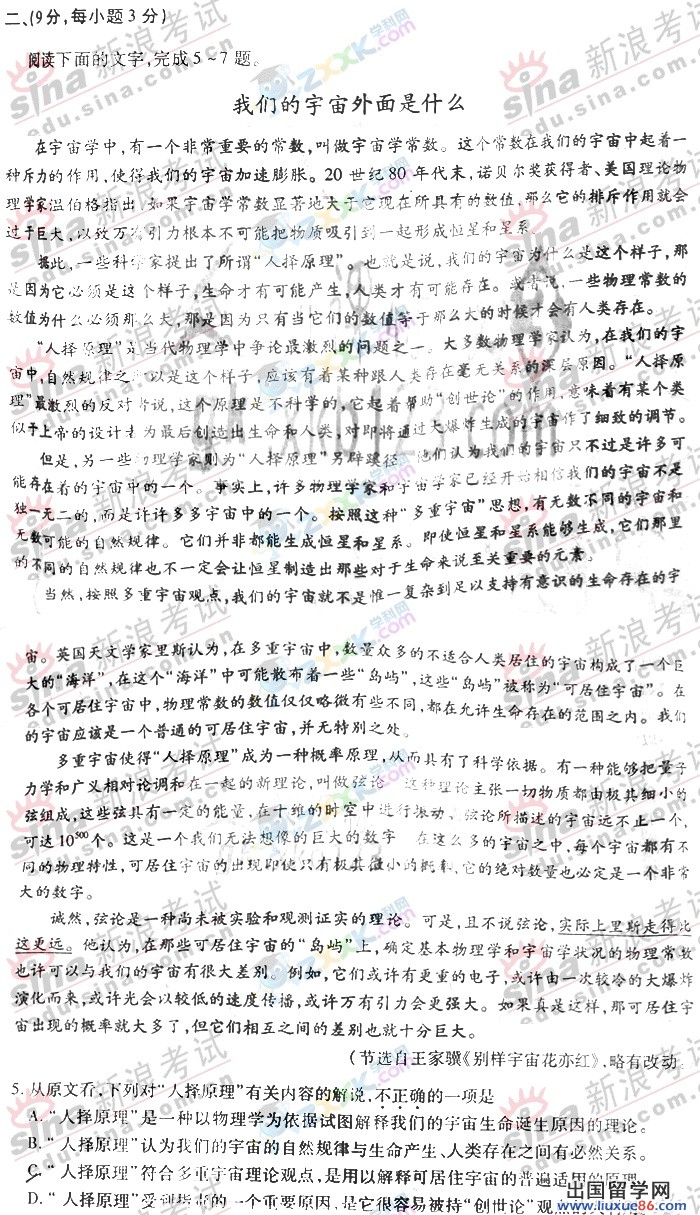 二、(9分,每小题3分)
阅读下面的文字,完成5~7题。
我们的宇宙外面是什么
在宇宙学中,有一个非常重要的常数,叫做宇宙学常数。这个常数在我们的宇宙中起着一
种斥力的作用,使得我们的宇宙加速膨胀。20世纪80年代末,诺贝尔奖获得者、美国理论物
理学家温伯格指出 如果宇宙学常数显著地大于它现在所具有的数值,那么它的排斥作用就会
过于巨大,以致万有引力根本不可能把物质吸引到一起形成恒星和星系。
据此,一些科学家提出了所谓“人择原理”。也就是说,我们的宇宙为什么是这个样子,那
是因为它必须是这个样子,生命才有可能产生,人类才有可能存在。或者说,一些物理常数的
数值为什么必须那么大,那是因为只有当它们的数值等于那么大的时候才会有人类存在。
“人择原理”是当代物理学中争论最激烈的问题之一。大多数物理学家认为,在我们的宇
宙中,自然规律之所以是这个样子,应该有着某种跟人类存在毫无关系的深层原因。“人择原
理”最激烈的反对者说,这个原理是不科学的,它起着帮助“创世论”的作用,意味着有某个类
似于上帝的设计者为最后创造出生命和人类,对即将通过大爆炸生成的宇宙作了细致的调节。
但是,另一些物理学家则为“人择原理”另辟蹊径。他们认为我们的宇宙只不过是许多可
能存在着的宇宙中的一个。事实上,许多物理学家和宇宙学家已经开始相信我们的宇宙不是
独一无二的,而是许许多多宇宙中的一个。按照这种“多重宇宙”思想,有无数不同的宇宙和
无数可能的自然规律。它们并非都能生成恒星和星系。即使恒星和星系能够生成,它们那里
的不同的自然规律也不一定会让恒星制造出那些对于生命来说至关重要的元素。
当然,按照多重宇宙观点,我们的宇宙就不是惟一复杂到足以支持有意识的生命存在的宇
宙。英国天文学家里斯认为,在多重宇宙中,数量众多的不适合人类居住的宇宙构成了一个巨
大的“海洋”,在这个“海洋”中可能散布着一些“岛屿”,这些“岛屿”被称为“可居住宇宙”。在
各个可居住宇宙中,物理常数的数值仅仅略微有些不同,都在允许生命存在的范围之内。我们
的宇宙应该是一个普通的可居住宇宙,并无特别之处。
多重宇宙使得“人择原理”成为一种概率原理,从而具有了科学依据。有一种能够把量子
力学和广义相对论调和在一起的新理论,叫做弦论。这种理论主张一切物质都由极其细小的
弦组成,这些弦具有一定的能量,在十维的时空中进行振动。弦论所描述的宇宙远不止一个,
可达10⁵⁰⁰个。这是一个我们无法想像的巨大的数字 在这么多的宇宙之中,每个宇宙都有不
同的物理特性,可居住宇宙的出现即使只有极其微小的概率,它的绝对数量也必定是一个非常
大的数字。
诚然,弦论是一种尚未被实验和观测证实的理论。可是,且不说弦论,实际上里斯走得比
这更远。他认为,在那些可居住宇宙的“岛屿”上,确定基本物理学和宇宙学状况的物理常数
也许可以与我们的宇宙有很大差别。例如,它们或许有更重的电子,或许由一次较冷的大爆炸
演化而来,或许光会以较低的速度传播,或许万有引力会更强大。如果真是这样,那可居住宇
宙出现的概率就大多了,但它们相互之间的差别也就十分巨大。
(节选自王家骥《别样宇宙花亦红》,略有改动)
5. 从原文看,下列对“人择原理”有关内容的解说,不正确的一项是
A. “人择原理”是一种以物理学为依据试图解释我们的宇宙生命诞生原因的理论。
B. “人择原理”认为我们的宇宙的自然规律与生命产生、人类存在之间有必然关系。
C. “人择原理”符合多重宇宙理论观点,是用以解释可居住宇宙的普遍适用的原理。
D. “人择原理”受到指责的一个重要原因,是它很容易被持“创世论”观点的
出国留学网
www.liuxue86.com
sina新浪考试
edu.sina.com.cn
ZXXK.COM
学科网